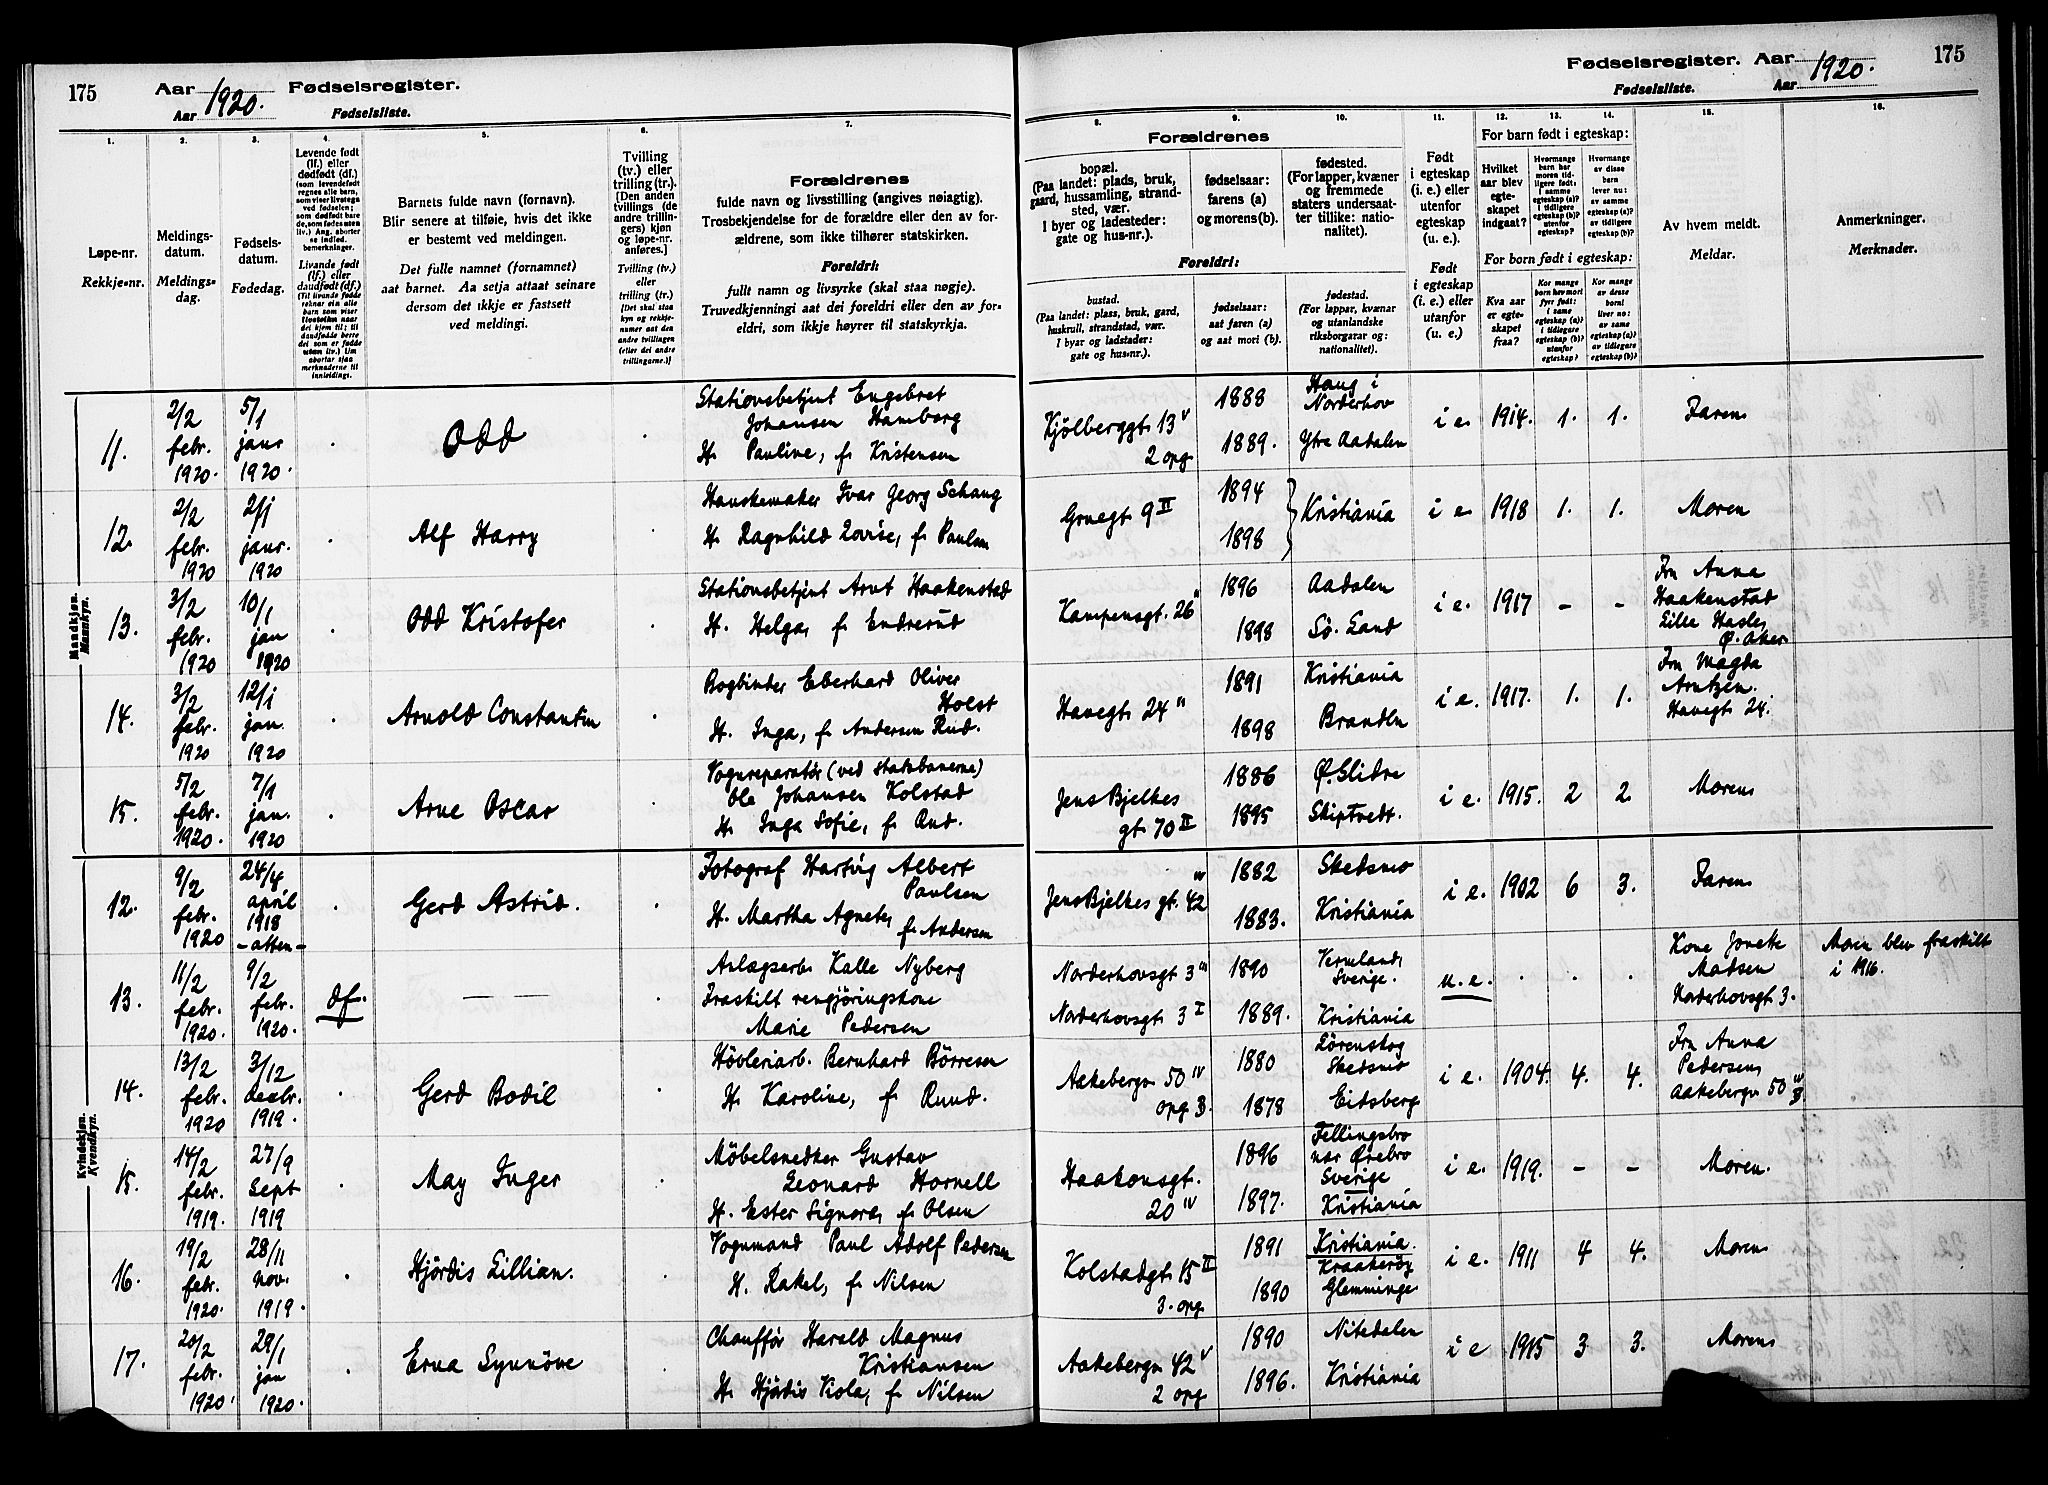 175
Aar 1920. Fødselsregister.
Aar Fødselsliste.
1.
Løpe-nr.
Rekkje-nr.
2.
Meldings-
datum.
Meldings-
dag.
3.
Fødsels-
datum.
Fødedag.
4.
Levende født
(lf.) eller
dødfødt (df.)
Livande født
(lf.) eller
daudfødt (df.)
5.
Barnets fulde navn (fornavn).
Blir senere at tilføie, hvis det ikke
er bestemt ved meldingen.
Det fulle namnet (fornamnet)
aat barnet. Aa setja attaat seinare
dersom det ikkje er fastsett
ved meldingi.
6.
Tvilling
(tv.) eller
trilling (tr.).
(Den anden
tvillings (de
andre trillin-
gers) kjøn
og løpe-nr.
anføres.)
Tvilling (tv.)
eller
trilling (tr.)
7.
Forældrenes
fulde navn og livsstilling (angives nøiagtig).
Trosbekjendelse for de forældre eller den av for-
ældrene, som ikke tilhører statskirken.
Foreldri:
fullt namn og livsyrke (skal staa nøgje).
Truvedkjenningi aat dei foreldri eller den av for-
eldri, som ikkje høyrer til statskyrkja.
Mandkjøn.
Mannkyn.
11.
2/2
febr.
1920.
5/1
janr
1920.
Odd
Stationsbetjent Engebret
Johansen Hamborg
H. Pauline, f. Kristensen
12.
2/2
febr.
1920
2/1
janr.
1920
Alf Harry
Hanskemaker Ivar Georg Schaug
H. Ragnhild Lovise, f. Paulsen
13.
3/2
febr.
1920
10/1
jan
1920
Odd Kristofer
Stationsbetjent Arnt Haakenstad
H. Helga, f. Endrerud
14.
3/2
febr.
1920
12/1
jan.
1920
Arnold Constantin
Bogbinder Eberhard Oliver
Holst
H. Inga, f. Andersen Rud.
15.
5/2
febr.
1920.
7/1
jan.
1920
Arne Oscar
Vognreparatør (ved statsbanerne)
Ole Johansen Kolstad
H. Inga Sofie, f. Rud.
Kvindekjøn.
Kvendkyn.
12.
9/2
febr.
1920
24/4
april
1918
-atten-
Gerd Astrid.
Fotograf Hartvig Albert
Paulsen
H. Martha Agnete, f. Andersen
13.
11/2
febr.
1920.
9/2
febr.
1920.
df.
— —
Anlægsarb. Kalle Nyberg
Fraskilt rengjøringskone
Marie Pedersen
14.
13/2
febr.
1920
3/12
decbr.
1919.
Gerd Bodil
Høvleriarb. Bernhard Børresen
H. Karoline, f. Ruud.
15.
14/2
febr.
1919.
27/9
sept
1919
May Inger
Møbelsnedker Gustav
Leonard Hornell
H. Ester Signora, f. Olsen
16.
19/2
febr.
1920.
28/11
nov.
1919.
Hjørdis Lillian.
Vognmand Paul Adolf Pedersen
H. Rakel, f. Nilsen
17.
20/2
febr.
1920.
29/1
jan
1920.
Erna Synnöve
Chauffør Harald Magnus
Kristiansen
H. Hjørdis Viola, f. Nilsen
Fødselsregister. Aar 1920. 175
Fødselsliste. Aar
8.
Forældrenes
bopæl.
(Paa landet: plads, bruk,
gaard, hussamling, strand-
sted, vær.
I byer og ladesteder:
gate og hus-nr.).
Foreldri:
bustad.
(Paa landet: plass, bruk, gard,
huskrull, strandstad, vær.
I byar og ladstader:
gate og hus-nr.).
9.
fødselsaar:
farens (a)
og morens (b).
fødselsaar:
aat faren (a)
og aat mori (b).
10.
fødested.
(For lapper, kvæner
og fremmede
staters undersaat-
ter tillike: natio-
nalitet).
fødestad.
(For lappar, kvænar
og utanlandske
riksborgarar og:
nationalitet).
11.
Født
i egteskap
(i. e.) eller
utenfor
egteskap
(u. e.).
Født
i egteskap
(i. e.) eller
utanfor
(u. e.)
12. 13. 14.
For barn født i egteskap:
Hvilket
aar blev
egte-
skapet
indgaat?
For born født i egteskap:
Kva aar
er egte-
skapet
fraa?
15.
Av hvem meldt.
Meldar.
16.
Anmerkninger.
Merknader.
Kjølberggt. 13 V
2 opg
1888
1889.
Haug i
Norderhov
Ytre Aadalen
i e. 1914. 1. 1. Faren
Gruegt 9 II
1894
1898
Kristiania
i e. 1918 1. 1. Moren
Kampensgt. 26 II
1896
1898
Aadalen
Sö. Land
i e. 1917 - -
Fru Anna
Haakenstad
Lille Hasle,
Ø. Aker
Havegt 24 II
1891
1898
Kristiania
Brandbu
i e. 1917. 1. 1.
Fru Magda
Arntzen.
Havegt 24.
Jens Bjelkes
gt. 70 II
1886
1895
Ø. Slidre
Skiptvedt.
i e. 1915. 2 2. Moren
Jens Bjelkes gt. 42 III
1882
1883.
Skedsmo
Kristiania
i e. 1902 6 3. Faren
Norderhovsgt 3 III
Norderhovsgt 3 I
1890
1889.
Vermland,
Sverige.
Kristiania
u. e. . . .
Kone Jonette
Madsen
Norderhovsgt 3.
Moren blev fraskilt
i 1916.
Aakebergv 50 IV
opg 3.
1880
1878
Lørenskog
Skedsmo
Eidsberg
i e. 1904. 4. 4.
Fru Anna
Pedersen,
Aakebergv 50 IV
Haakonsgt.
20 IV
1896
1897.
Fellingsbro
nær Ørebro
Sverige
Kristiania
i e. 1919. - - Moren.
Kolstadgt 15 II
3. opg
1891
1890
Kristiania.
Kraakerøy
Glemminge
i e. 1911 4 4. Moren
Aakebergv 42 V
2 opg
1890
1896.
Nitedalen
Kristiania
i e 1915 3 3. Moren